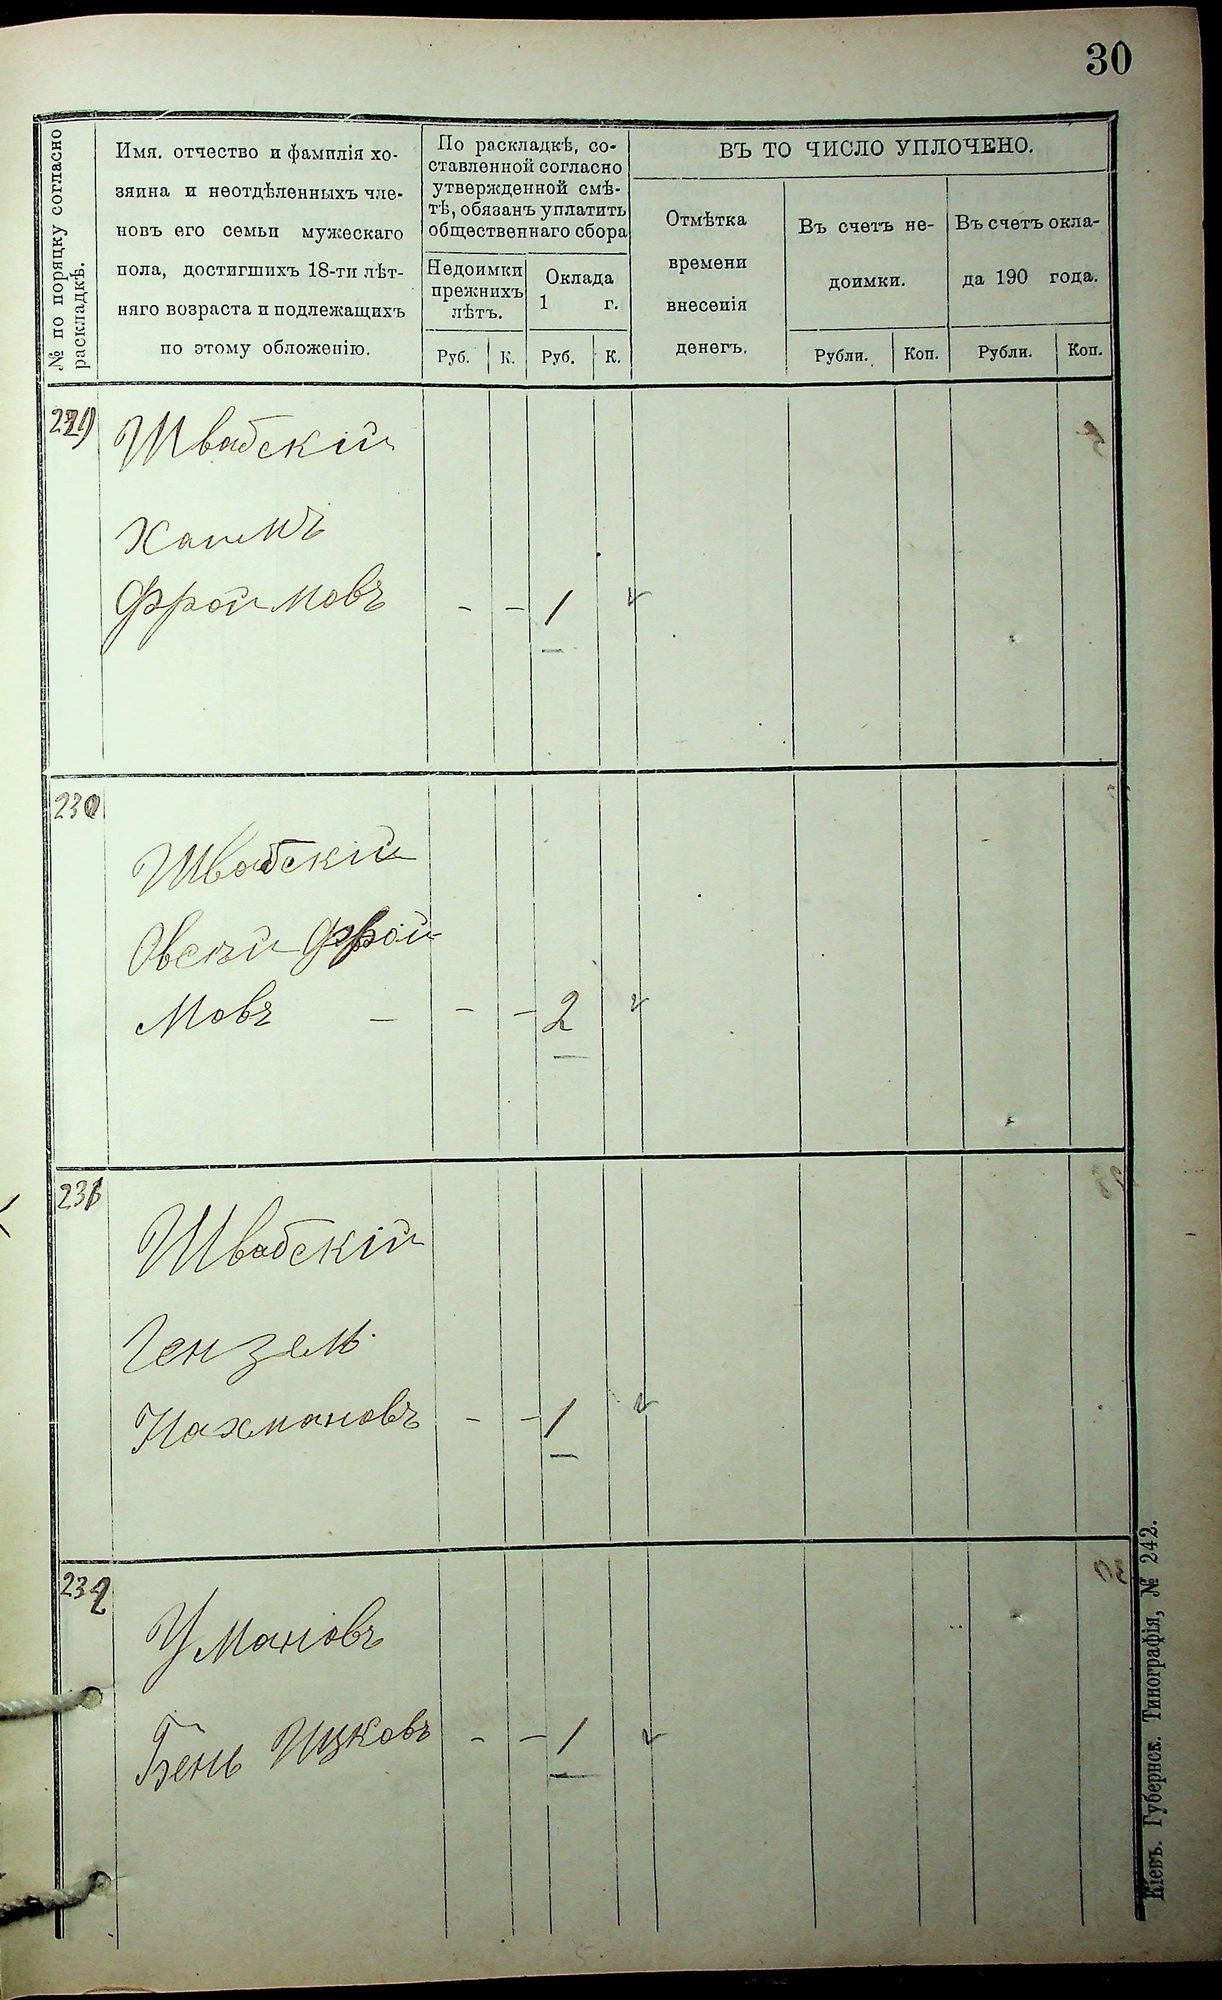 30
№ по поряцку согласно
раскладкѣ.
Имя, отчество и фамилія хо-
зяина и неотдѣленныхъ чле-
новъ его семьи мужескаго
пола, достигшихъ 18-ти лѣт-
няго возраста и подлежащихъ
по этому обложенію.
По раскладкѣ, со-
ставленной согласно
утвержденной смѣ-
тѣ, обязанъ уплатить
общественнаго сбора
Недоимки
прежнихъ
лѣтъ.
Оклада
1 г.
Руб. К. Руб. К.
ВЪ ТО ЧИСЛО УПЛОЧЕНО.
Отмѣтка
времени
внесенія
денегъ.
Въ счетъ не-
доимки.
Рубли. Коп.
Въ счетъ окла-
да 190 года.
Рубли. Коп.
229 Швабскій
Хаимъ
Фроймовъ - - 1
230
Швабскій
Овсѣй Фрой
мовъ - - - 2
231
Швабскій
Гензель
Нахмановъ - - 1
232
Умановъ
Бень Ицковъ - - 1
Кіевъ. Губернск. Типографія, № 242.